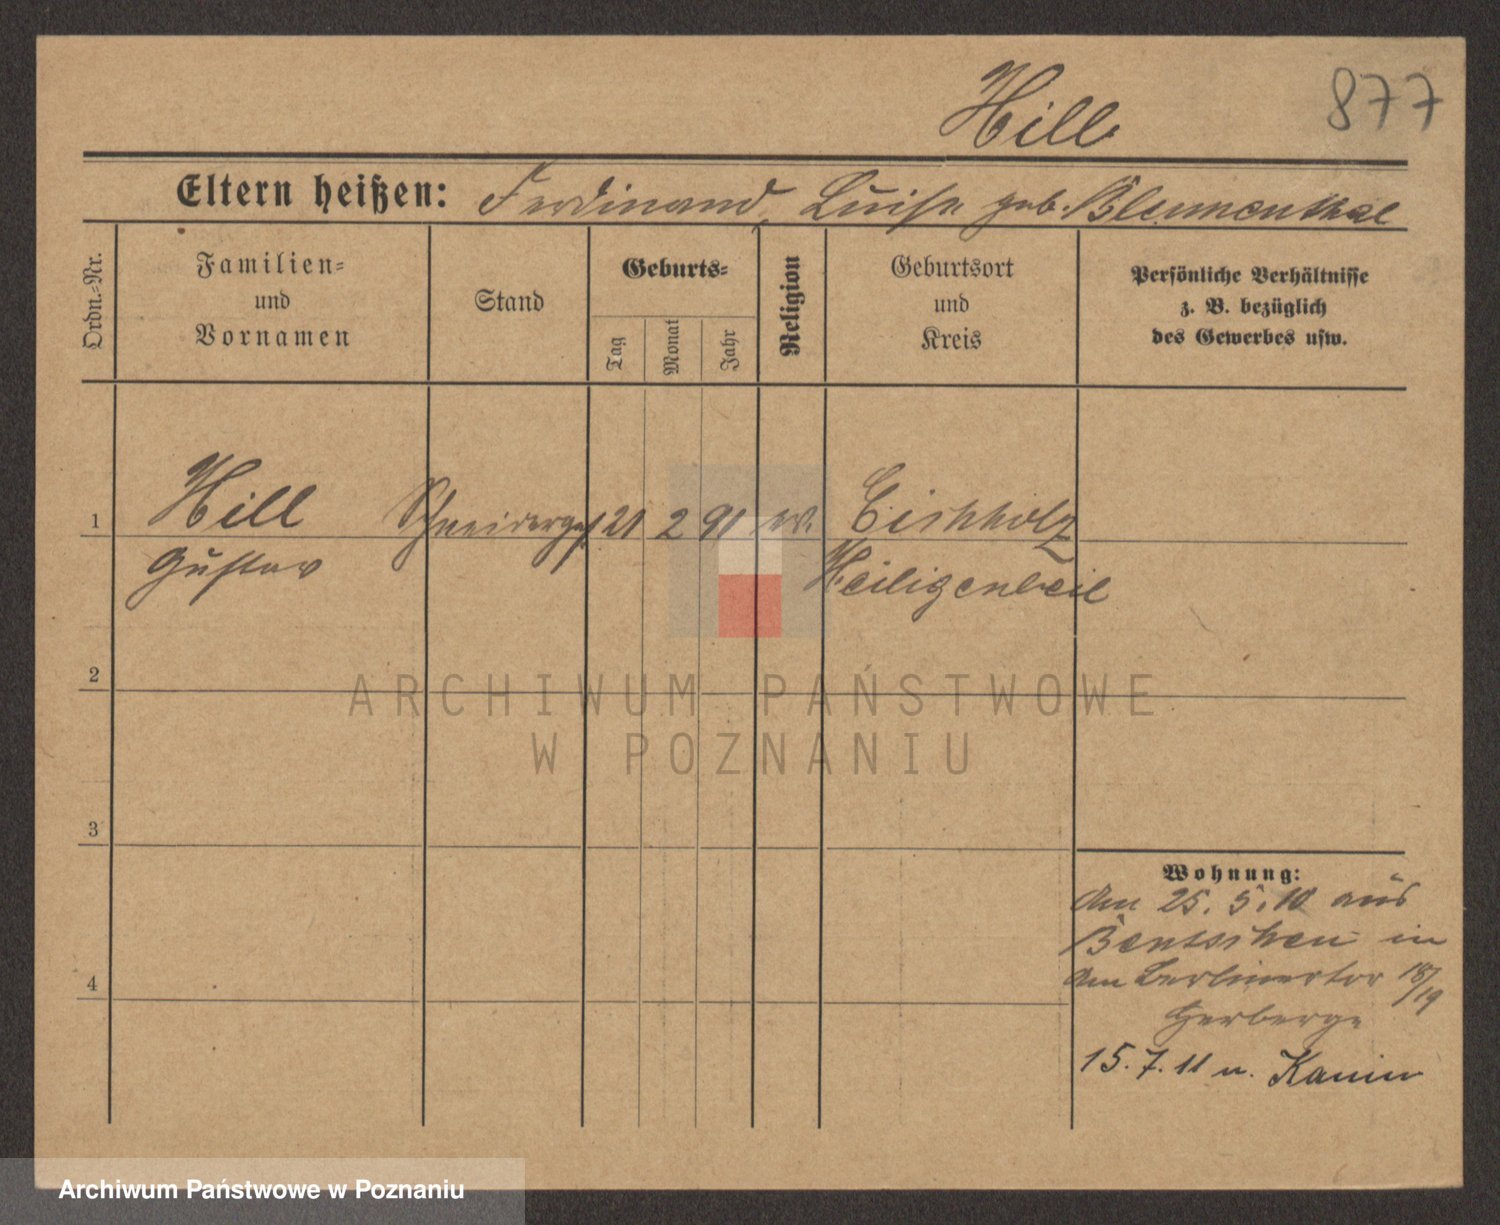 Hill 877
Eltern heißen: Ferdinand, Luise geb. Blumenthal
Ordn.-Nr.
Familien-
und
Vornamen
Stand
Geburts-
Tag
Monat
Jahr
Religion
Geburtsort
und
Kreis
Persönliche Verhältnisse
z. B. bezüglich
des Gewerbes usw.
1 Hill Schneiderges. 21 2 91 ev. Eichholz
Gustav Heiligenbeil
2
ARCHIWUM PAŃSTWOWE
W POZNANIU
3
Wohnung:
Am 25. 5. 10 aus
Bentschen in
Am Berlinertor 18/19
4
Herberge
15. 7. 11 n. Kanin
Archiwum Państwowe w Poznaniu